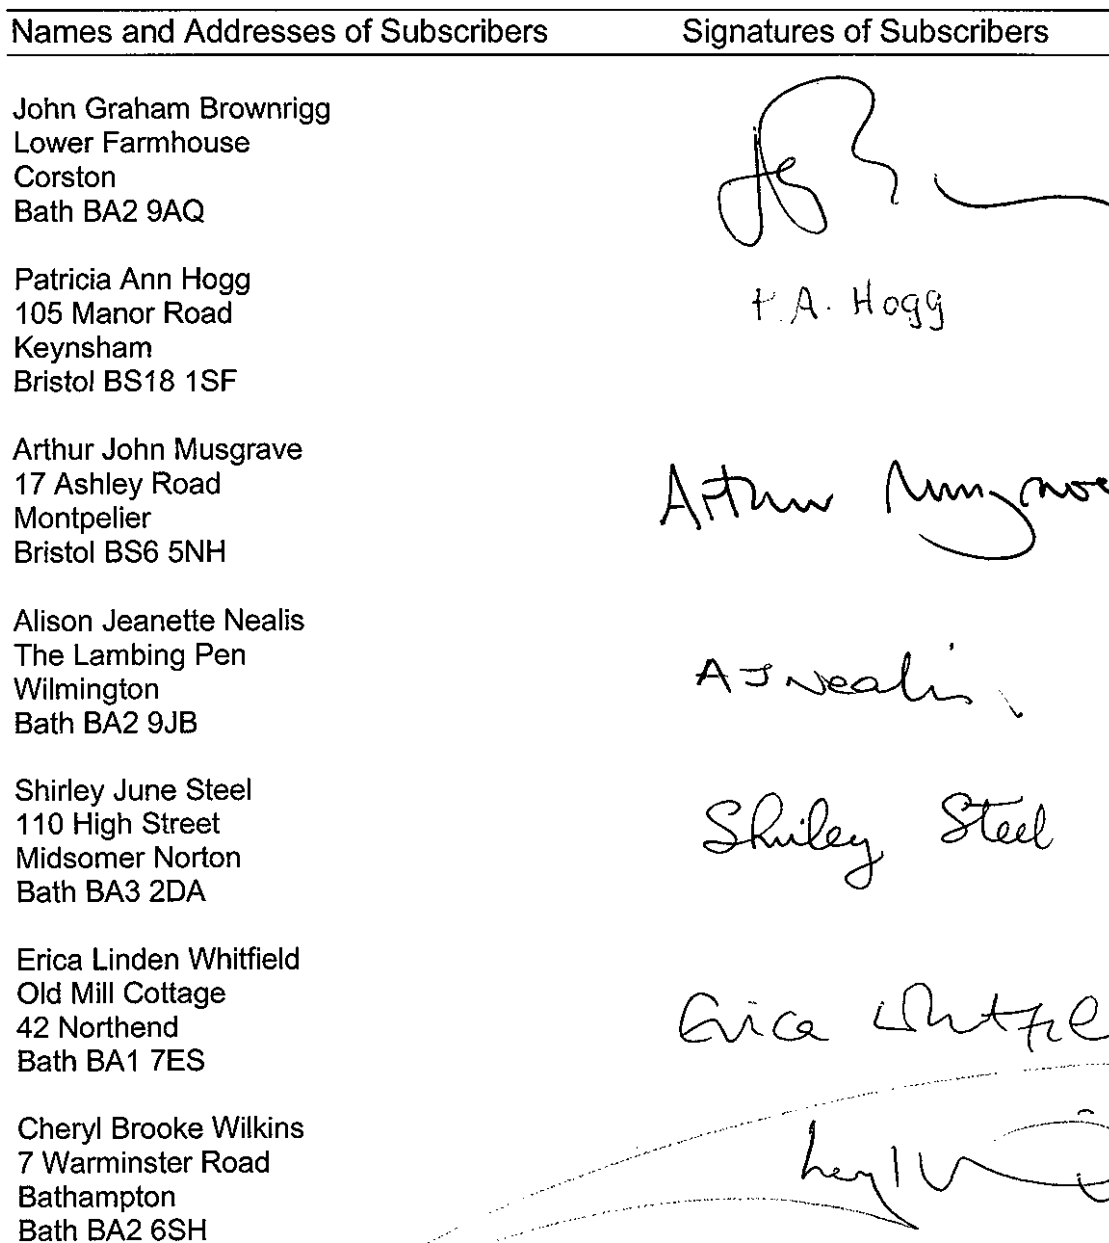 Names and Addresses of Subscribers Signatures of Subscribers
John Graham Brownrigg
Lower Farmhouse
Corston
Bath BA2 9AQ
Patricia Ann Hogg
105 Manor Road
Keynsham
Bristol BS18 1SF
P.A. Hogg
Arthur John Musgrave
17 Ashley Road
Montpelier
Bristol BS6 5NH
Arthur Musgrave
Alison Jeanette Nealis
The Lambing Pen
Wilmington
Bath BA2 9JB
A J Nealis
Shirley June Steel
110 High Street
Midsomer Norton
Bath BA3 2DA
Shirley Steel
Erica Linden Whitfield
Old Mill Cottage
42 Northend
Bath BA1 7ES
Erica
Cheryl Brooke Wilkins
7 Warminster Road
Bathampton
Bath BA2 6SH